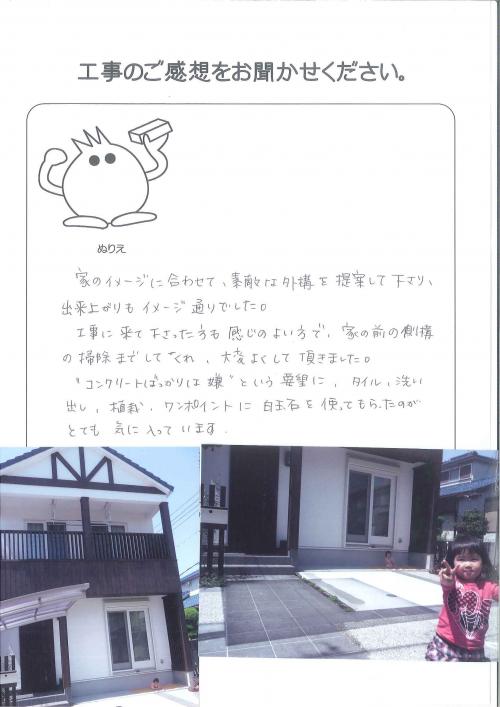 工事のご感想をお聞かせください。
ぬりえ
家のイメージに合わせて、素敵な外構を提案して下さり、
出来上がりもイメージ通りでした。
工事に来て下さった方も感じのよい方で、家の前の側構
の掃除までしてくれ、大変よくして頂きました。
"コンクリートばっかりは嫌"という要望に、タイル、洗い
出し、植栽、ワンポイントに白玉石を使ってもらったのが
とても気に入っています.